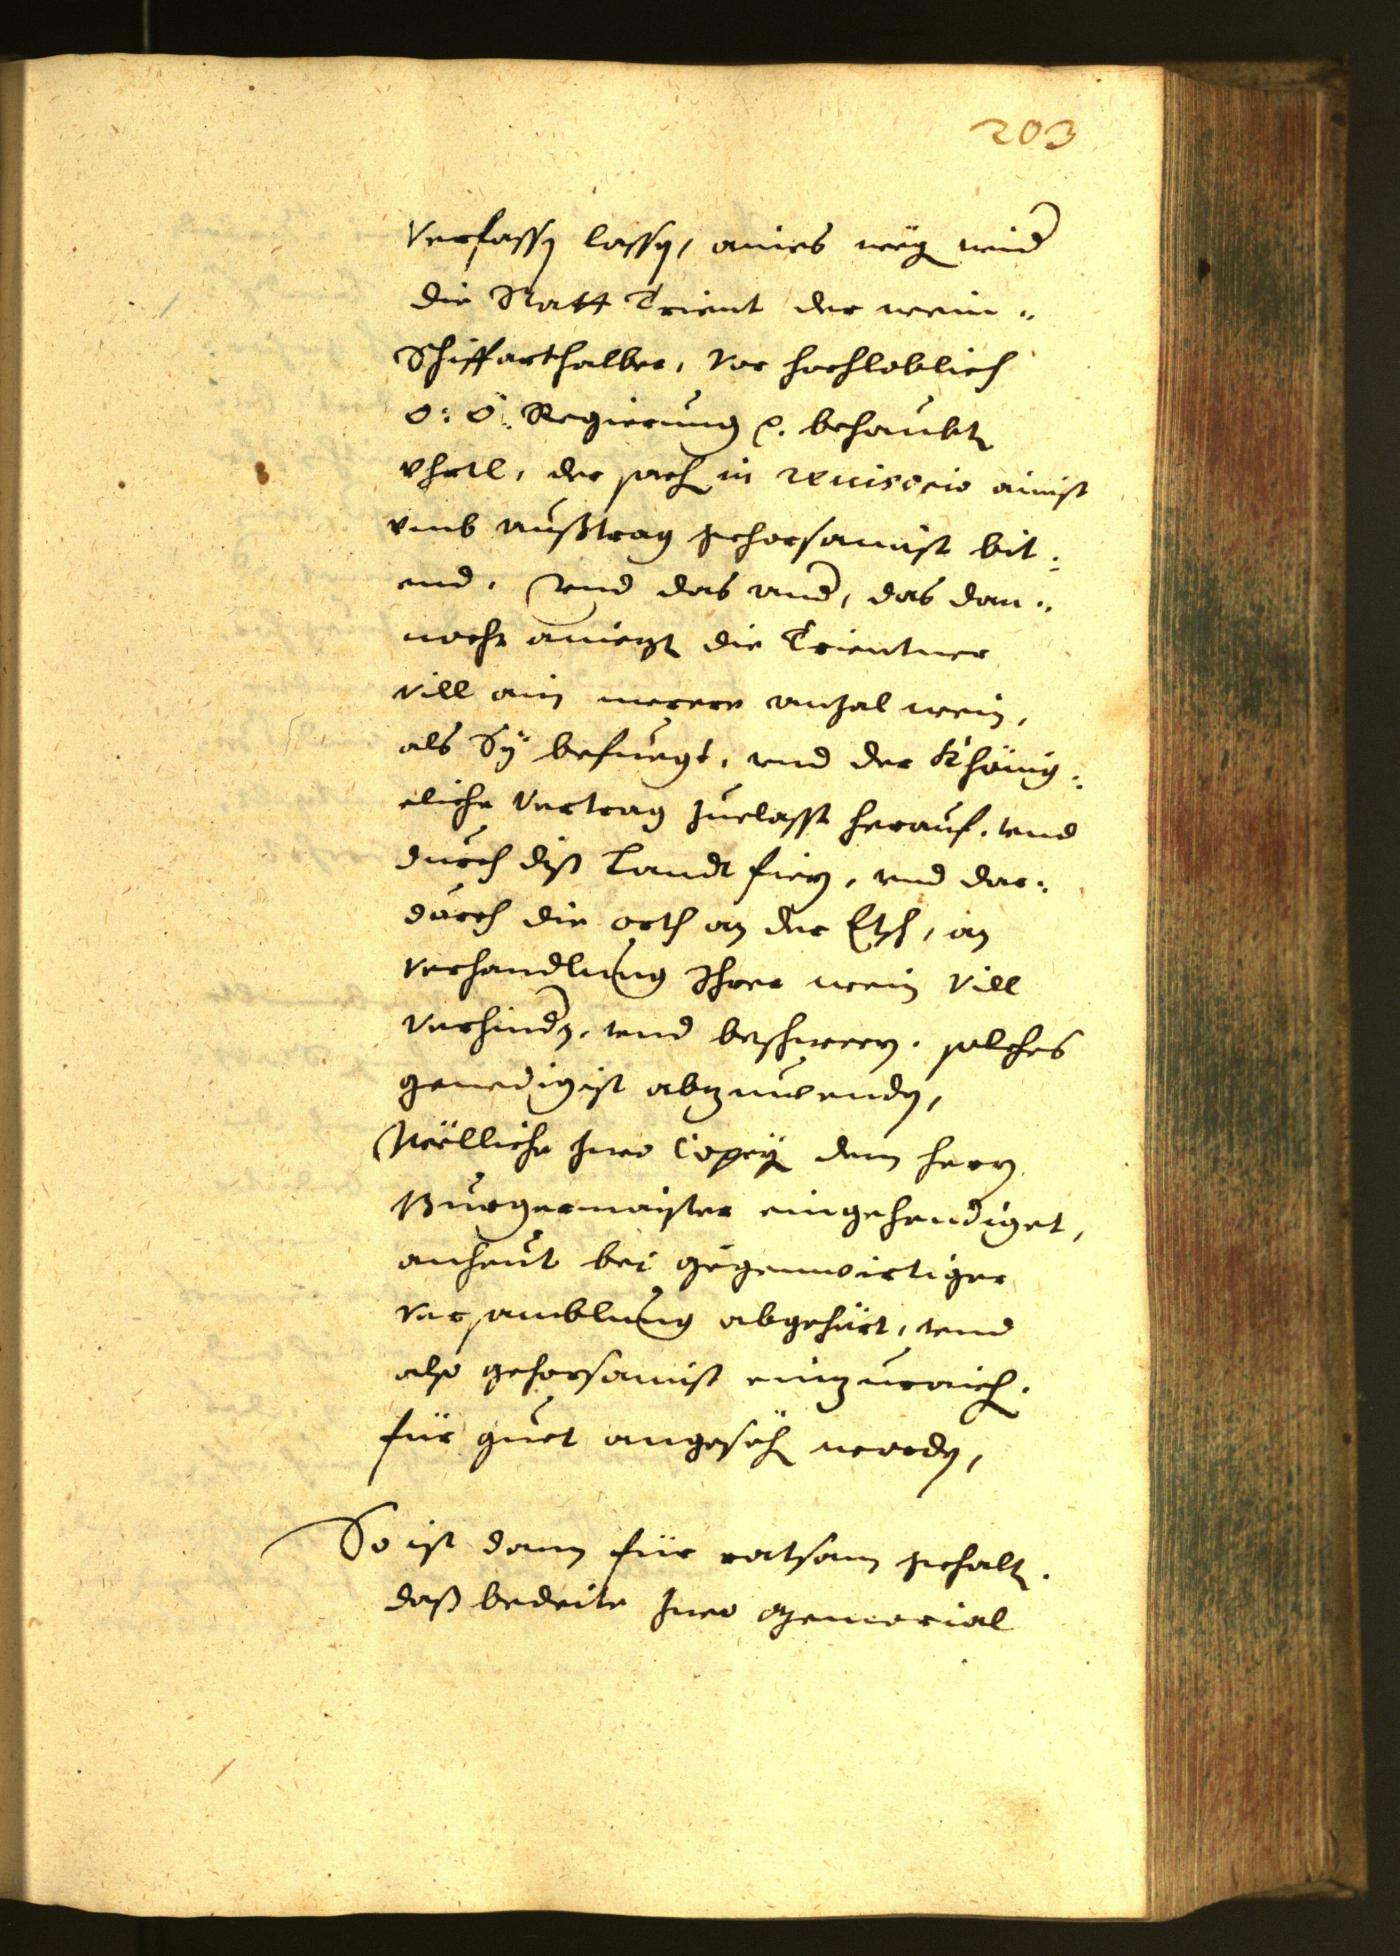 203
Verfassen lassen, aines weg wider
die Statt Trient der wein-
Schiffarthalber, vor hochloblich
O: Ö: Regierung behaubten
vhrtl, der sach in reuisorio ainist
vmb außtrag gehorsamist bit:
end. Vnd das ander, das dan-
nocht aniezt die Trientner
vill ain merere anzal wein,
als Sÿ befuegt, vnd der Khönig:
eliche Vertrag zuelasst herauf, vnd
durch diß Landt fiern, vnd dar:
durch die orth an der Etsch, an
verhandlung Ihrer wein vill
verhindern, vnd beschweren. solches
genedigist abzuwenden,
Wölliche zwo Copeÿ dem herrn
Burgermaister eingehendiget,
anheut bei gegenwirtiger
versamblung abgehört, vnd
also gehorsamist einzuraichen.
für guet angesehen worden,
So ist dann für ratsam gehalten.
daß bedeite zwo Memorial